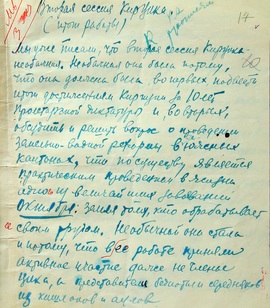 Вторая сессия КирЦика.
(Итоги работы)
14
Мы уже писали, что вторая сессия КирЦика
необычна. Необычна она была потому,
что она должна была во первых подвести
итог достижениям Киргизии за 10 лет
Пролетарской диктатуры и во вторых,
обсудить и решить вопрос о проведении
земельно-водной реформы в южных
кантонах, что по существу является
практическим проведением в жизнь
одного из величайших завоеваний
Октября. Земля тому, кто обрабатывает
своим трудом. Необычной она стала
и потому, что в ее работе приняли
активное участие даже не члены
Цика, а представители бедноты и середняков
из кишлаков и аулов